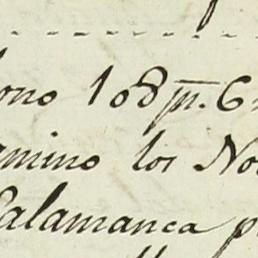 ono 108 m. 6
amino los No
Salamanca p